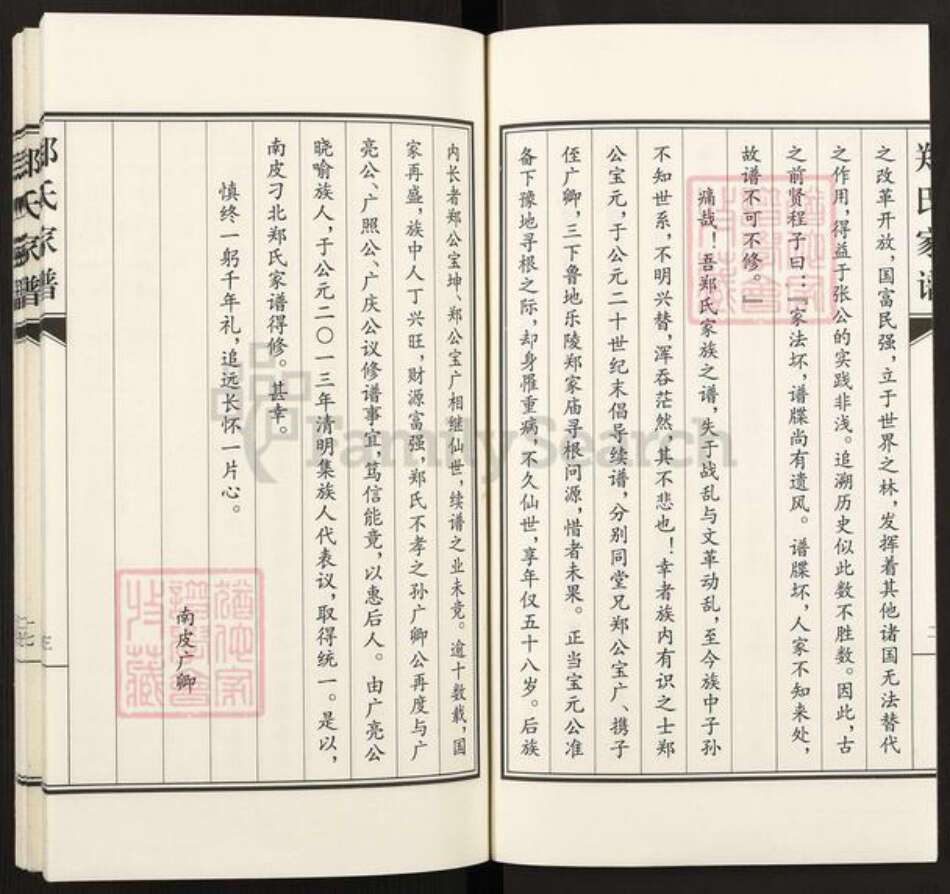 郑氏家谱
之改革开放，国富民强，立于世界之林，发挥着其他诸国无法替代
之作用，得益于张公的实践非浅。追溯历史似此数不胜数。因此，古
之前贤程子曰：『家法坏，谱牒尚有遗风。谱牒坏，人家不知来处，
故谱不可不修。』
痛哉！吾郑氏家族之谱，失于战乱与文革动乱，至今族中子孙
不知世系，不明兴替，浑吞茫然，其不悲也！幸者族内有识之士郑
公宝元，于公元二十世纪末倡导续谱，分别同堂兄郑公宝广、携子
侄广卿，三下鲁地乐陵郑家庙寻根问源，惜者未果。正当宝元公准
备下豫地寻根之际，却身罹重病，不久仙世，享年仅五十八岁。后族
内长者郑公宝坤、郑公宝广相继仙世，续谱之业未竟。逾十数载，国
家再盛，族中人丁兴旺，财源富强，郑氏不孝之孙广卿公再度与广
亮公、广照公、广庆公议修谱事宜，笃信能竟，以惠后人。由广亮公
晓喻族人，于公元二〇一三年清明集族人代表议，取得统一。是以，
南皮刁北郑氏家谱得修。甚幸。
慎终一躬千年礼，追远长怀一片心。
南皮广卿
郑氏家谱
郑氏家谱
FamilySearch